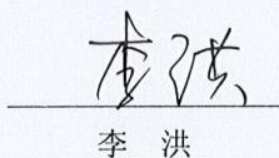 李洪
李 洪